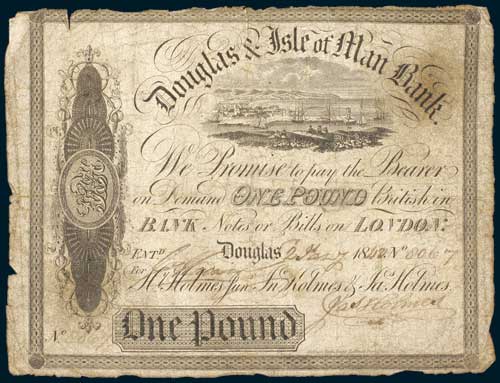 Douglas & Isle of Man Bank.
We Promise to pay the Bearer
on Demand ONE POUND British in
BANK Notes or Bills on LONDON:
ENTD Douglas 1842 No 8067
For Hy. Holmes Junr. Jno. Holmes & Js. Holmes.
Jas Holmes
No
One Pound